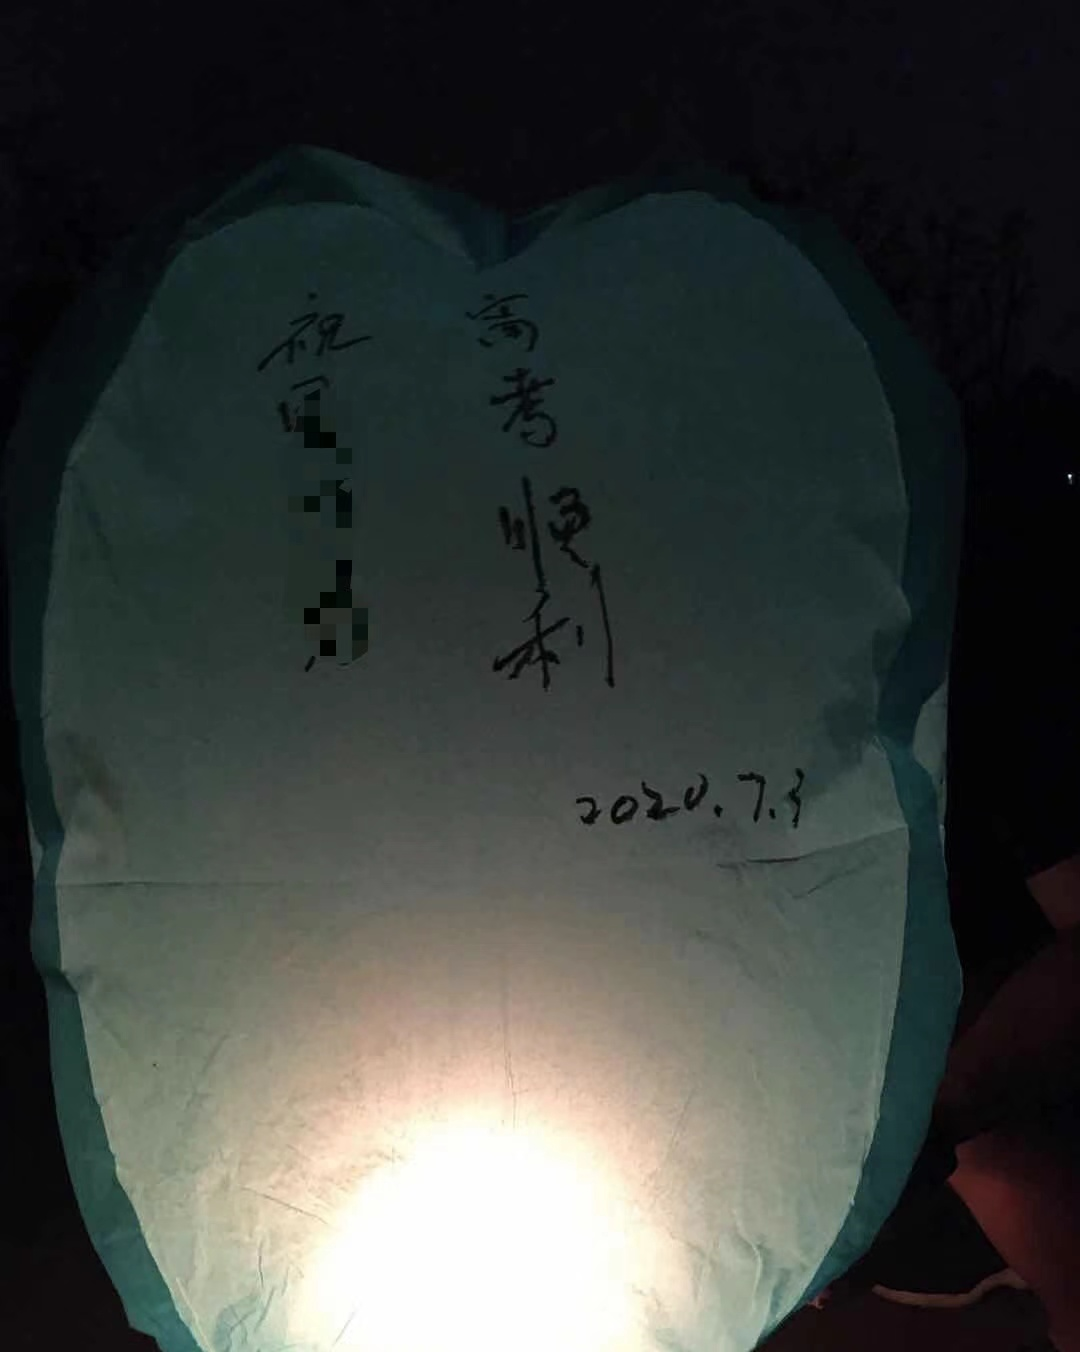 祝
高考顺利
2020.7.3